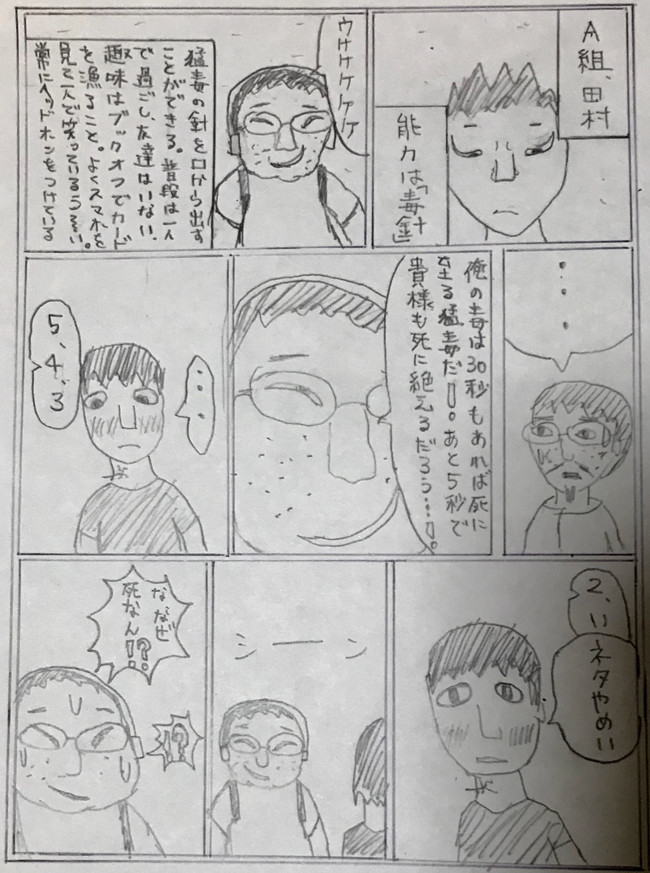 A組、田村
能力は「毒針」
ウケケケケケ
猛毒の針を口から出す
ことができる。普段は一人
で過ごし、友達はいない。
趣味はブックオフでカード
を漁ること。よくスマホを
見て一人で笑っているらしい。
常にヘッドホンをつけている
・・・
俺の毒は30秒もあれば死に
至る猛毒だ!。あと5秒で
貴様も死に絶えるだろう…!。
・・・
5、4、3
2、い
ネタやめい
シーン
な なぜ
死なん!?
!?